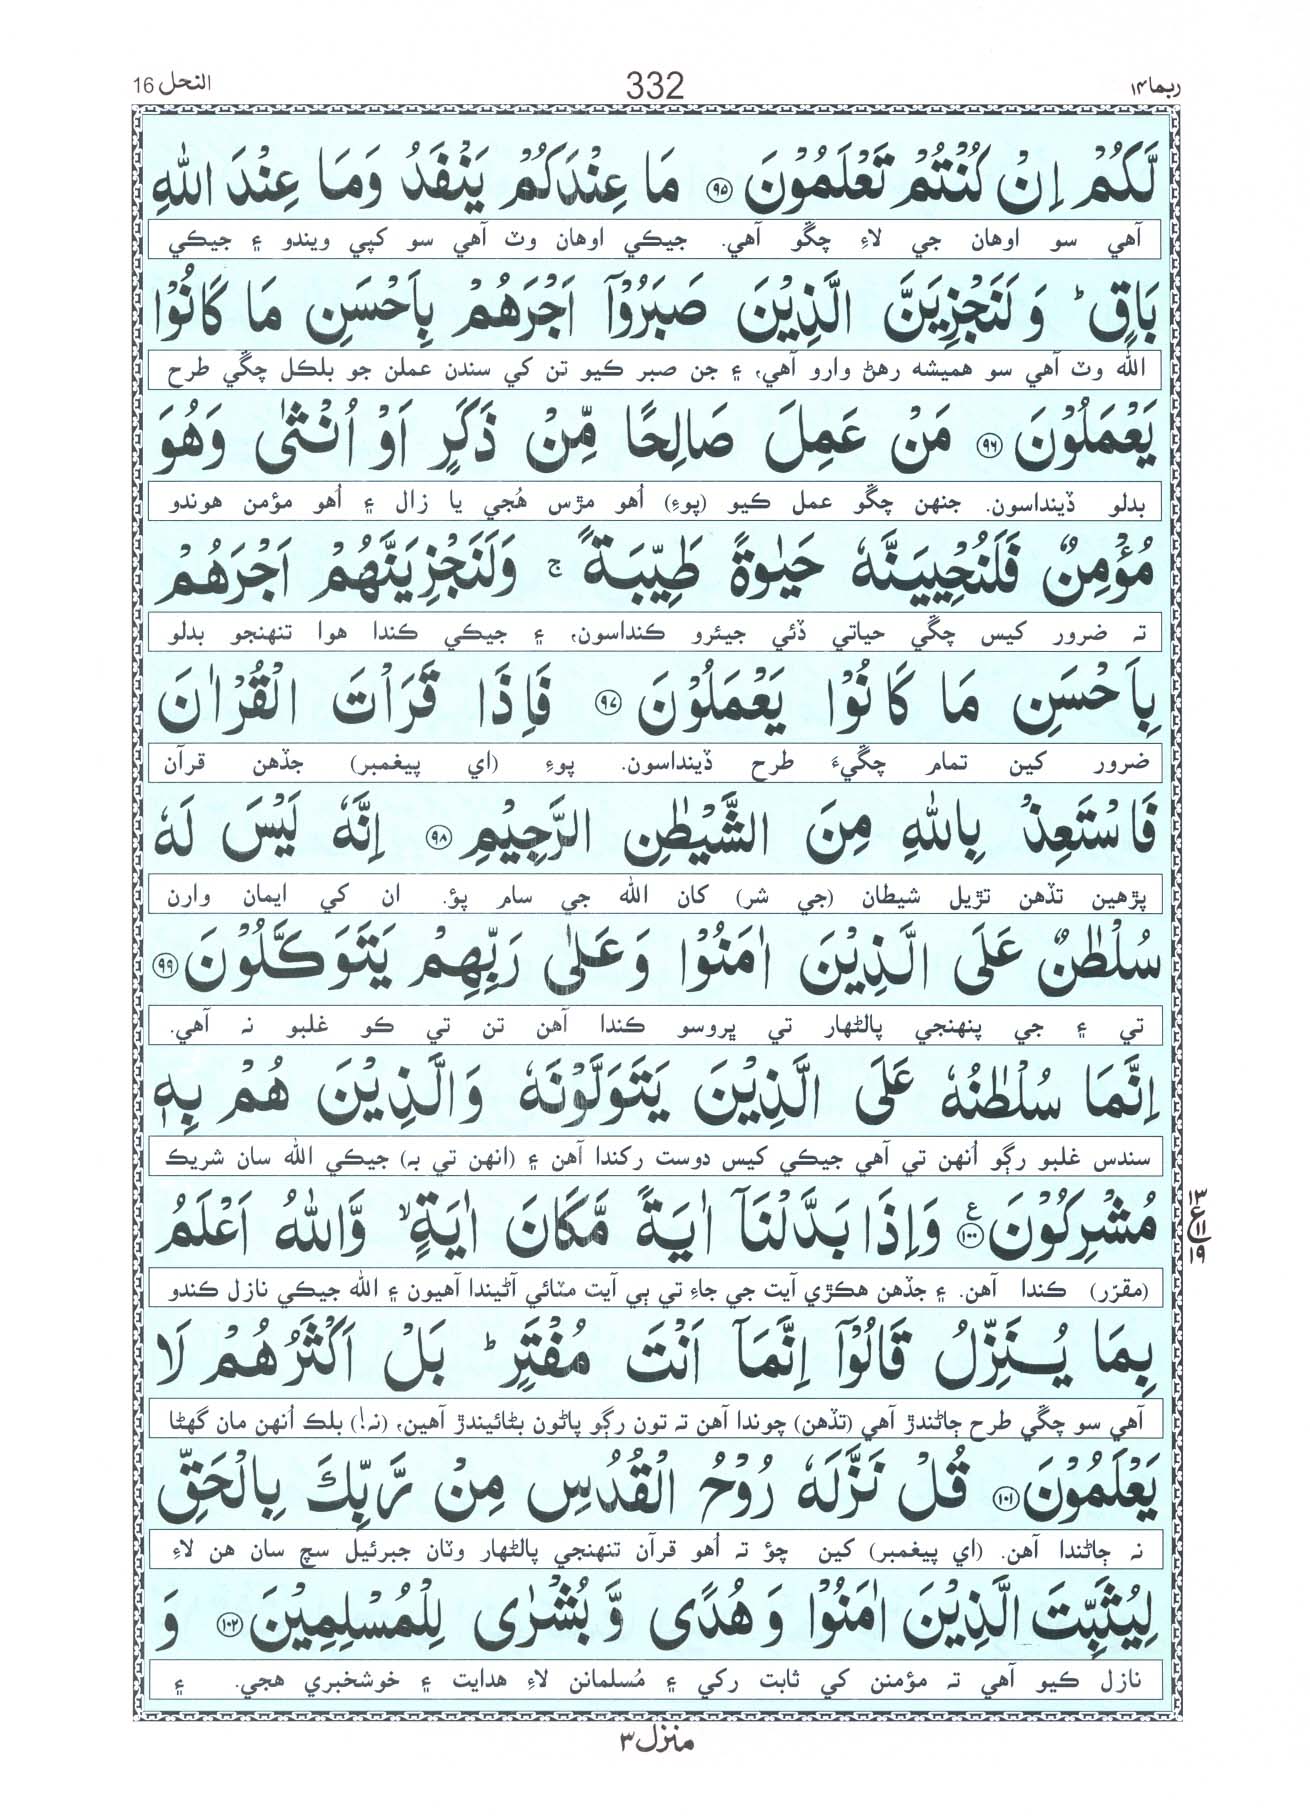 ربما ١٤
332
النحل 16
لَّكُمْ اِنْ كُنْتُمْ تَعْلَمُوْنَ ۝٩٥ مَا عِنْدَكُمْ يَنْفَدُ وَمَا عِنْدَ اللّٰهِ
آهي سو اوهان جي لاءِ چڱو آهي. جيڪي اوهان وٽ آهي سو کپي ويندو ۽ جيڪي
بَاقٍ ؕ وَلَنَجْزِيَنَّ الَّذِيْنَ صَبَرُوْۤا اَجْرَهُمْ بِاَحْسَنِ مَا كَانُوْا
الله وٽ آهي سو هميشه رهڻ وارو آهي، ۽ جن صبر ڪيو تن کي سندن عملن جو بلڪل چڱي طرح
يَعْمَلُوْنَ ۝٩٦ مَنْ عَمِلَ صَالِحًا مِّنْ ذَكَرٍ اَوْ اُنْثٰى وَهُوَ
بدلو ڏينداسون. جنهن چڱو عمل ڪيو (پوءِ) اُهو مڙس هُجي يا زال ۽ اُهو مؤمن هوندو
مُؤْمِنٌ فَلَنُحْيِيَنَّهٗ حَيٰوةً طَيِّبَةً ۚ وَلَنَجْزِيَنَّهُمْ اَجْرَهُمْ
ته ضرور کيس چڱي حياتي ڏئي جيئرو ڪنداسون، ۽ جيڪي ڪندا هوا تنهنجو بدلو
بِاَحْسَنِ مَا كَانُوْا يَعْمَلُوْنَ ۝٩٧ فَاِذَا قَرَاْتَ الْقُرْاٰنَ
ضرور کين تمام چڱيءَ طرح ڏينداسون. پوءِ (اي پيغمبر) جڏهن قرآن
فَاسْتَعِذْ بِاللّٰهِ مِنَ الشَّيْطٰنِ الرَّجِيْمِ ۝٩٨ اِنَّهٗ لَيْسَ لَهٗ
پڙهين تڏهن تڙيل شيطان (جي شر) کان الله جي سام پؤ. ان کي ايمان وارن
سُلْطٰنٌ عَلَى الَّذِيْنَ اٰمَنُوْا وَعَلٰى رَبِّهِمْ يَتَوَكَّلُوْنَ ۝٩٩
تي ۽ جي پنهنجي پالڻهار تي ڀروسو ڪندا آهن تن تي ڪو غلبو نه آهي.
اِنَّمَا سُلْطٰنُهٗ عَلَى الَّذِيْنَ يَتَوَلَّوْنَهٗ وَالَّذِيْنَ هُمْ بِهٖ
سندس غلبو رڳو اُنهن تي آهي جيڪي کيس دوست رکندا آهن ۽ (انهن تي به) جيڪي الله سان شريڪ
مُشْرِكُوْنَ ۝١٠٠ ع وَاِذَا بَدَّلْنَاۤ اٰيَةً مَّكَانَ اٰيَةٍ ۙ وَّاللّٰهُ اَعْلَمُ
١٣ ع ١١ ١٩
(مقرّر) ڪندا آهن. ۽ جڏهن هڪڙي آيت جي جاءِ تي ٻي آيت مٽائي آڻيندا آهيون ۽ الله جيڪي نازل ڪندو
بِمَا يُنَزِّلُ قَالُوْۤا اِنَّمَاۤ اَنْتَ مُفْتَرٍ ؕ بَلْ اَكْثَرُهُمْ لَا
آهي سو چڱي طرح ڄاڻندڙ آهي (تڏهن) چوندا آهن ته تون رڳو پاڻون بڻائيندڙ آهين، (نه!) بلڪ اُنهن مان گهڻا
يَعْلَمُوْنَ ۝١٠١ قُلْ نَزَّلَهٗ رُوْحُ الْقُدُسِ مِنْ رَّبِّكَ بِالْحَقِّ
نه ڄاڻندا آهن. (اي پيغمبر) کين چؤ ته اُهو قرآن تنهنجي پالڻهار وٽان جبرئيل سچ سان هن لاءِ
لِيُثَبِّتَ الَّذِيْنَ اٰمَنُوْا وَهُدًى وَّبُشْرٰى لِلْمُسْلِمِيْنَ ۝١٠٢ وَ
نازل ڪيو آهي ته مؤمنن کي ثابت رکي ۽ مُسلمانن لاءِ هدايت ۽ خوشخبري هجي. ۽
منزل ٣